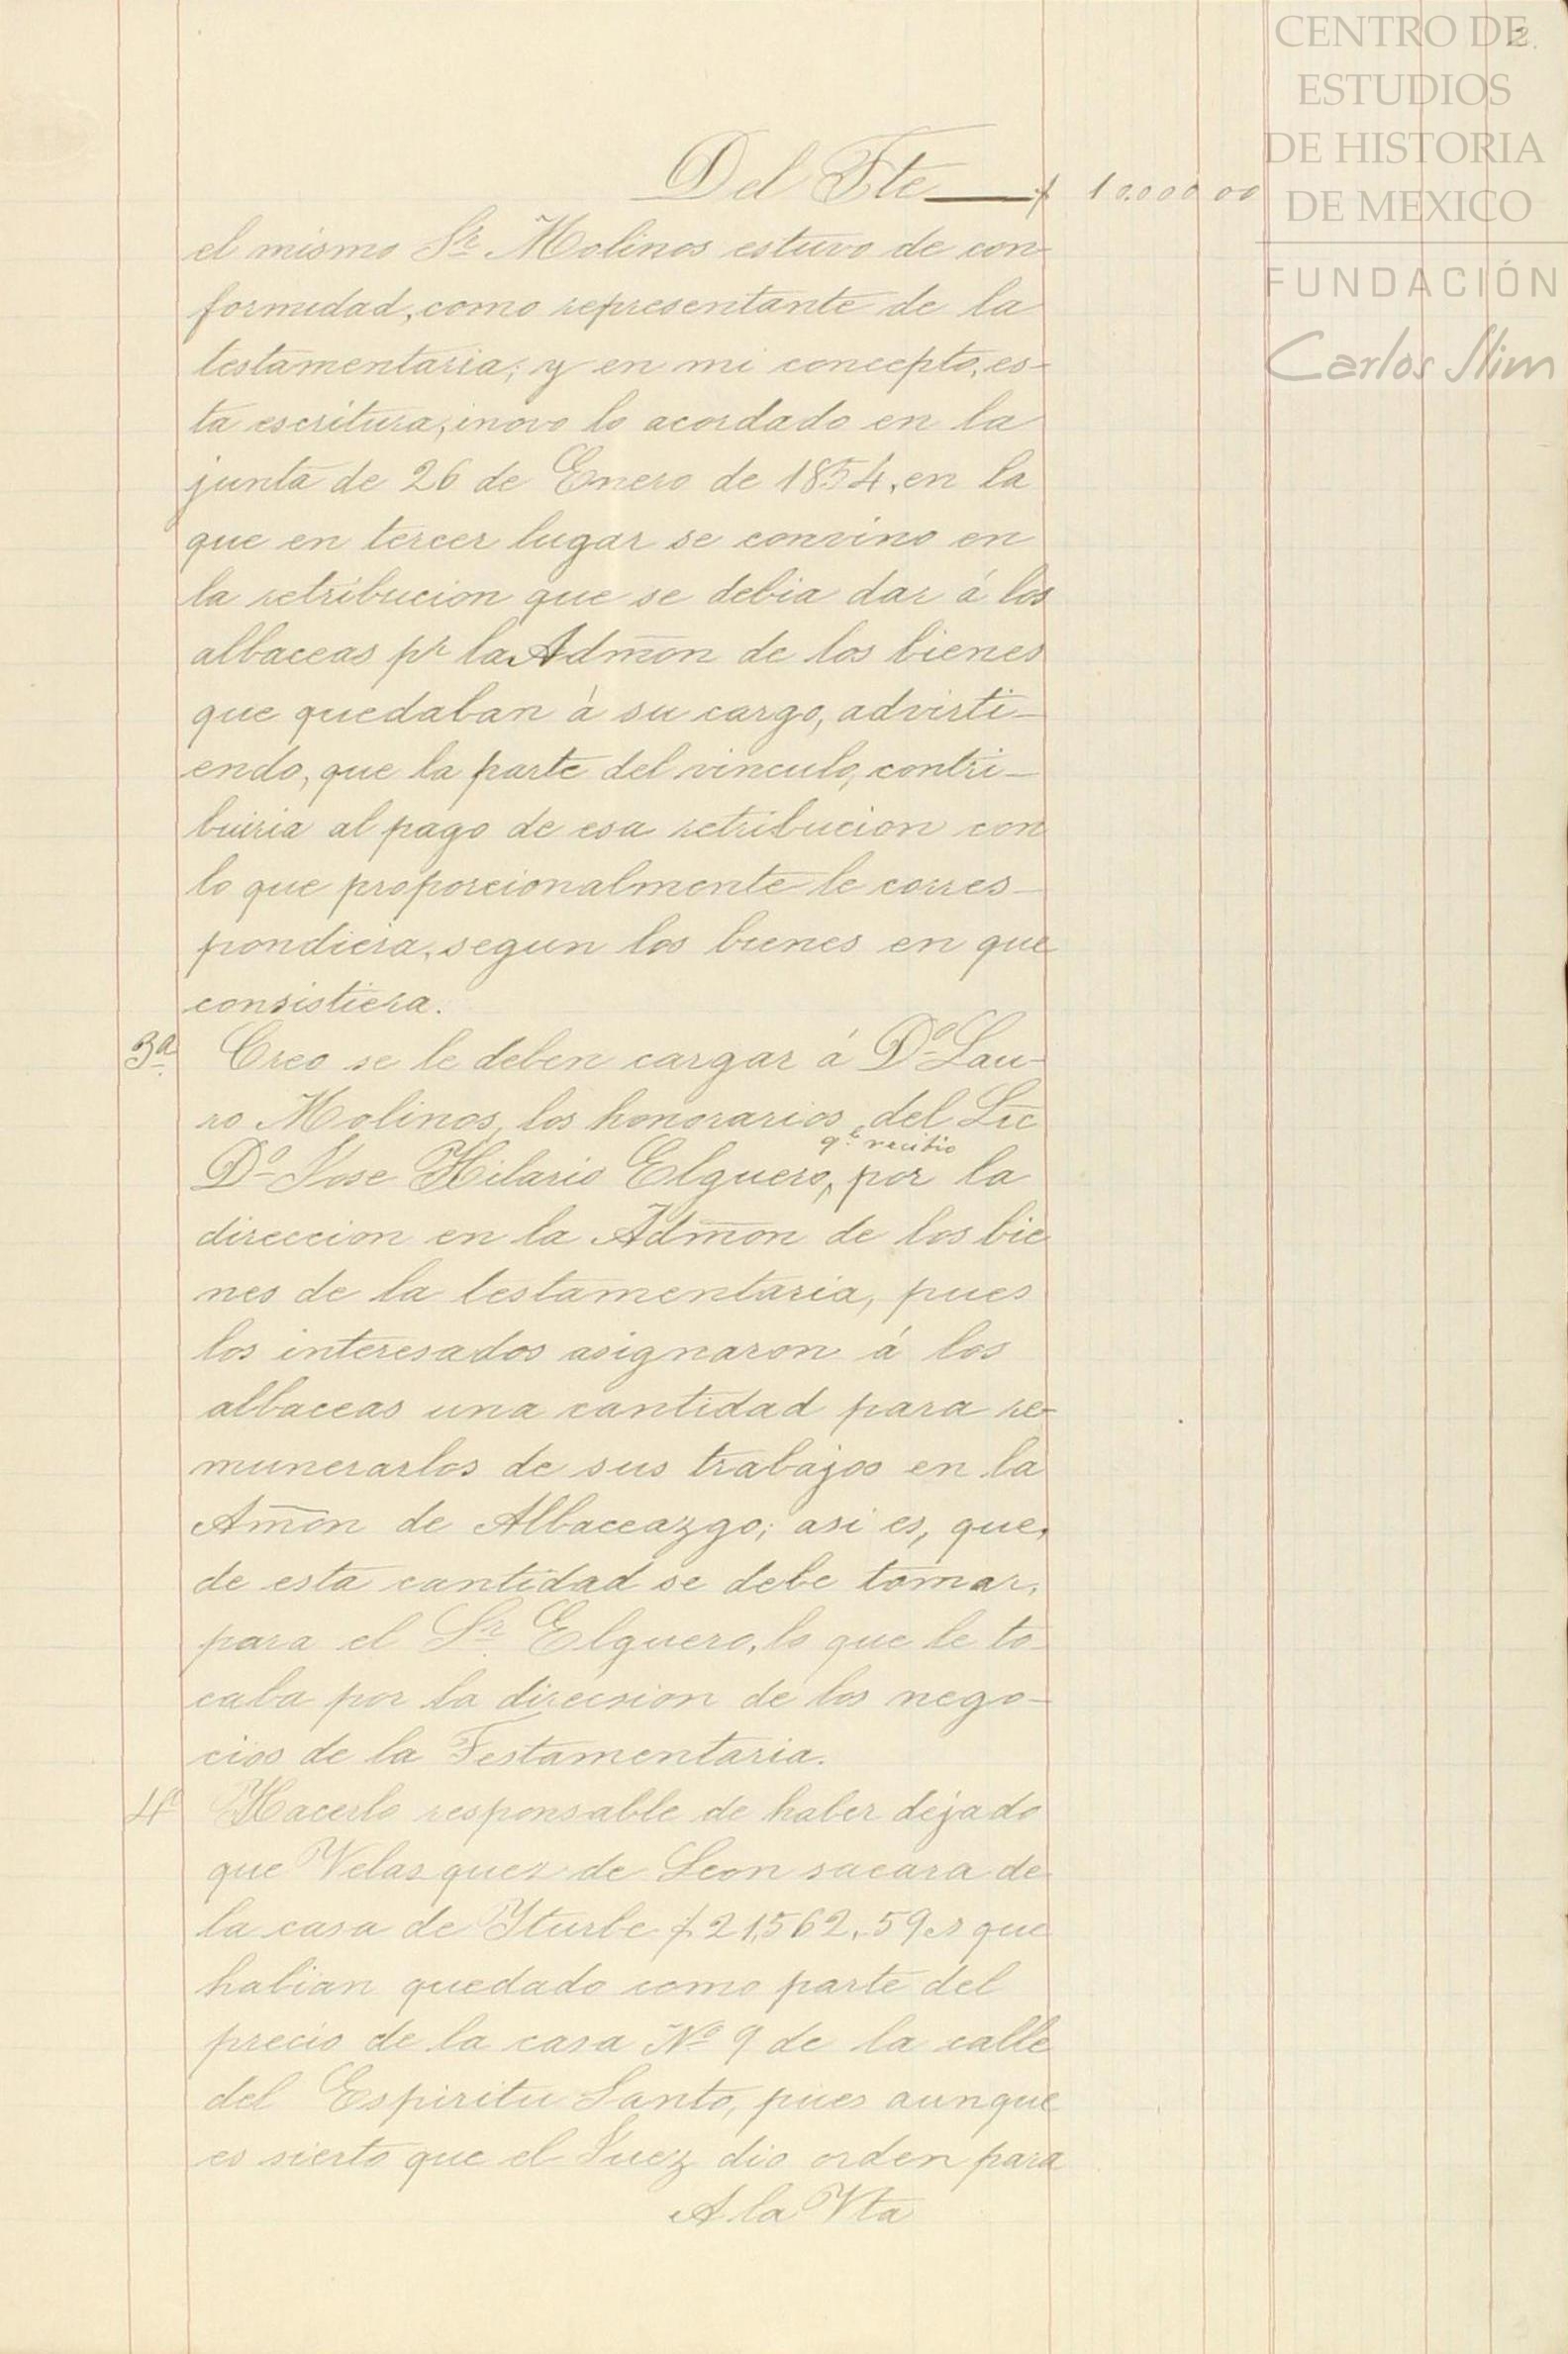 CENTRO DE
ESTUDIOS
DE HISTORIA
DE MEXICO
FUNDACIÓN
Carlos Slim
2.
Del Fte $ 10.000 00
el mismo Sr. Molinos estuvo de con-
formidad, como representante de la
testamentaria; y en mi concepto, es-
ta escritura, inovo lo acordado en la
junta de 26 de Enero de 1854, en la
que en tercer lugar se convino en
la retribucion que se debia dar á los
albaceas pr la Admon de los bienes
que quedaban á su cargo, advirti-
endo, que la parte del vinculo, contri-
buiria al pago de esa retribucion con
lo que proporcionalmente le corres-
pondiera, segun los bienes en que
consistiera.
3a. Creo se le deben cargar á Do Lau-
ro Molinos, los honorarios del Lic
qe. recibio
Do Jose Hilario Elguero, por la
direccion en la Admon de los bie
nes de la testamentaria, pues
los interesados asignaron á los
albaceas una cantidad para re-
munerarlos de sus trabajos en la
Amon de Albaceazgo; asi es, que,
de esta cantidad se debe tomar,
para el Sr. Elguero, lo que le to-
caba por la direcsion de los nego-
cios de la Testamentaria.
4a Hacerlo responsable de haber dejado
que Velasquez de Leon sacara de
la casa de Yturbe $21,562,.59cs que
habian quedado como parte del
precio de la casa No 9 de la calle
del Espiritu Santo, pues aunque
es sierto que el Juez dio orden para
A la Vta